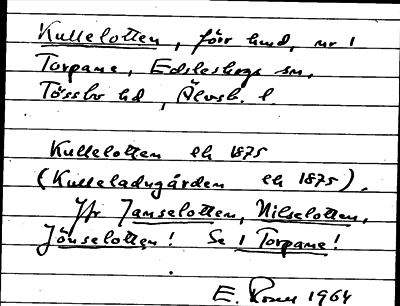 Kullelotten, förr hmd, nr 1
Torpane, Edsleskogs sn,
Tössbo hd, Älvsb. l.
Kullelotten ek 1875
(Kulleladugården ek 1875).
Jfr Janselotten, Nilselotten,
Jönselotten! Se 1 Torpane!
E. 1964